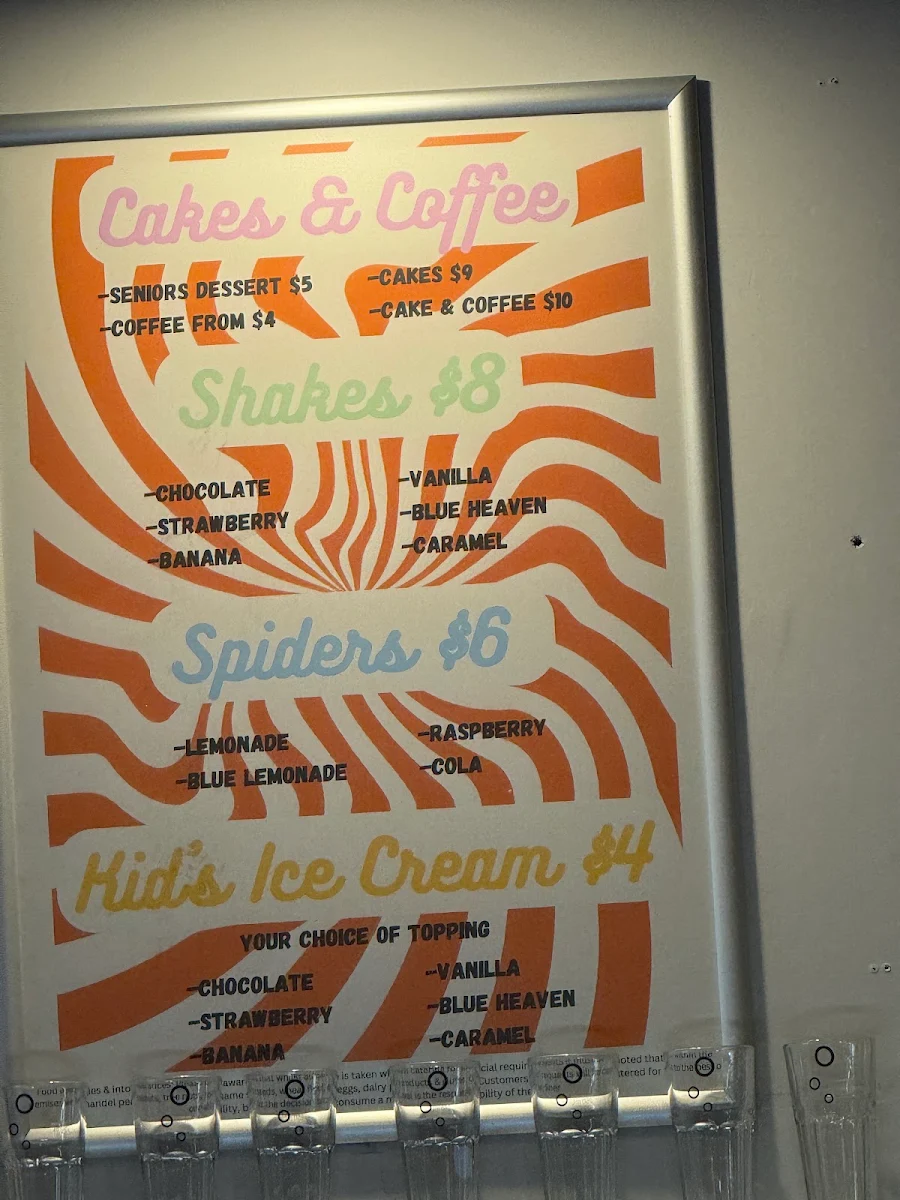 Cakes & Coffee
-SENIORS DESSERT $5
-COFFEE FROM $4
-CAKES $9
-CAKE & COFFEE $10
Shakes $8
-CHOCOLATE
-STRAWBERRY
-BANANA
-VANILLA
-BLUE HEAVEN
-CARAMEL
Spiders $6
-LEMONADE
-BLUE LEMONADE
-RASPBERRY
-COLA
Kid's Ice Cream $4
YOUR CHOICE OF TOPPING
-CHOCOLATE
-STRAWBERRY
-BANANA
-VANILLA
-BLUE HEAVEN
-CARAMEL
is taken noted that
eggs, dairy Customers
consume of the